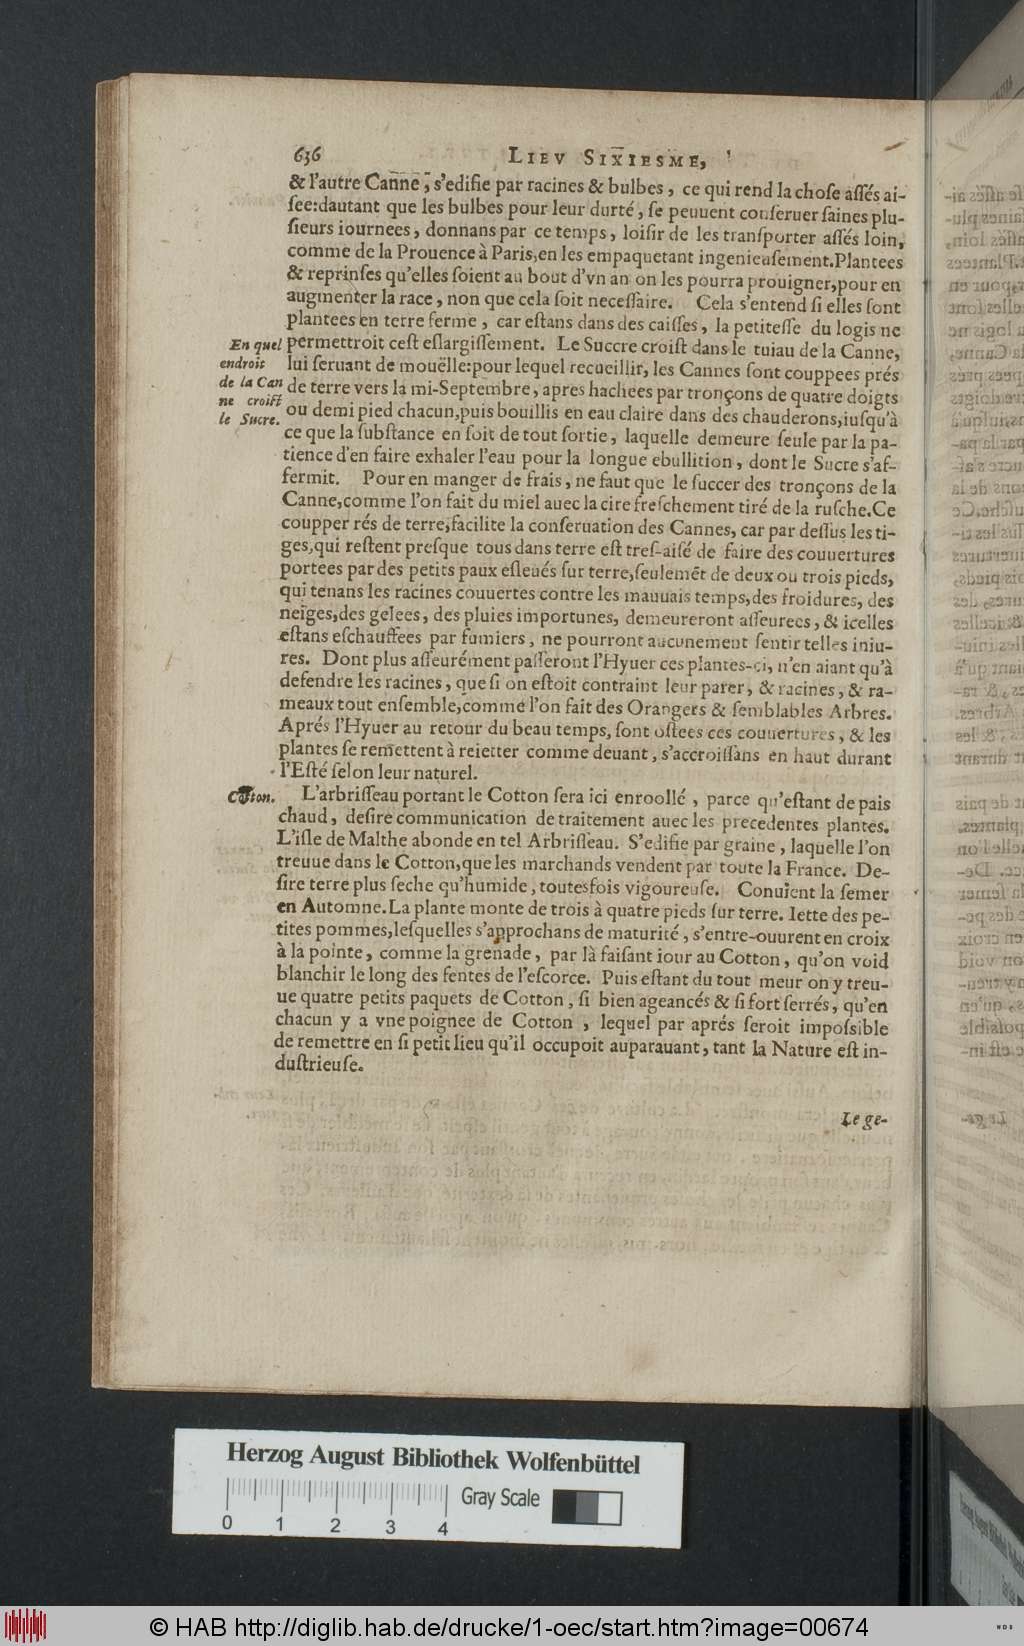 636
LIEV SIXIESME,
& l'autre Canne, s'edifie par racines & bulbes, ce qui rend la chose assés ai-
see: dautant que les bulbes pour leur durté, se peuuent conseruer saines plu-
sieurs iournees, donnans par ce temps, loisir de les transporter assés loin,
comme de la Prouence à Paris, en les empaquetant ingenieusement. Plantees
& reprinses qu'elles soient au bout d'vn an on les pourra prouigner, pour en
augmenter la race, non que cela soit necessaire. Cela s'entend si elles sont
plantees en terre ferme, car estans dans des caisses, la petitesse du logis ne
permettroit cest eslargissement. Le Succre croist dans le tuiau de la Canne,
lui seruant de mouëlle: pour lequel recueillir, les Cannes sont couppees prés
de terre vers la mi-Septembre, apres hachees par tronçons de quatre doigts
ou demi pied chacun, puis bouillis en eau claire dans des chauderons, iusqu'à
ce que la substance en soit de tout sortie, laquelle demeure seule par la pa-
tience d'en faire exhaler l'eau pour la longue ebullition, dont le Sucre s'af-
fermit. Pour en manger de frais, ne faut que le succer des tronçons de la
Canne, comme l'on fait du miel auec la cire freschement tiré de la rusche. Ce
coupper rés de terre, facilite la conseruation des Cannes, car par dessus les ti-
ges, qui restent presque tous dans terre est tres-aisé de faire des couuertures
portees par des petits paux esleués sur terre, seulemēt de deux ou trois pieds,
qui tenans les racines couuertes contre les mauuais temps, des froidures, des
neiges, des gelees, des pluies importunes, demeureront asseurees, & icelles
estans eschauffees par fumiers, ne pourront aucunement sentir telles iniu-
res. Dont plus asseurément passeront l'Hyuer ces plantes-ci, n'en aiant qu'à
defendre les racines, que si on estoit contraint leur parer, & racines, & ra-
meaux tout ensemble, comme l'on fait des Orangers & semblables Arbres.
Aprés l'Hyuer au retour du beau temps, sont ostees ces couuertures, & les
plantes se remettent à reietter comme deuant, s'accroissans en haut durant
l'Esté selon leur naturel.
En quel
endroit
de la Can
ne croist
le Sucre.
Cotton.
L'arbrisseau portant le Cotton sera ici enroollé, parce qu'estant de pais
chaud, desire communication de traitement auec les precedentes plantes.
L'isle de Malthe abonde en tel Arbrisseau. S'edifie par graine, laquelle l'on
treuue dans le Cotton, que les marchands vendent par toute la France. De-
sire terre plus seche qu'humide, toutesfois vigoureuse. Conuient la semer
en Automne. La plante monte de trois à quatre pieds sur terre. Iette des pe-
tites pommes, lesquelles s'approchans de maturité, s'entre-ouurent en croix
à la pointe, comme la grenade, par là faisant iour au Cotton, qu'on void
blanchir le long des fentes de l'escorce. Puis estant du tout meur on y treu-
ue quatre petits paquets de Cotton, si bien ageancés & si fort serrés, qu'en
chacun y a vne poignee de Cotton, lequel par aprés seroit impossible
de remettre en si petit lieu qu'il occupoit auparauant, tant la Nature est in-
dustrieuse.
Le ge-
Herzog August Bibliothek Wolfenbüttel
Gray Scale
0 1 2 3 4
© HAB http://diglib.hab.de/drucke/1-oec/start.htm?image=00674